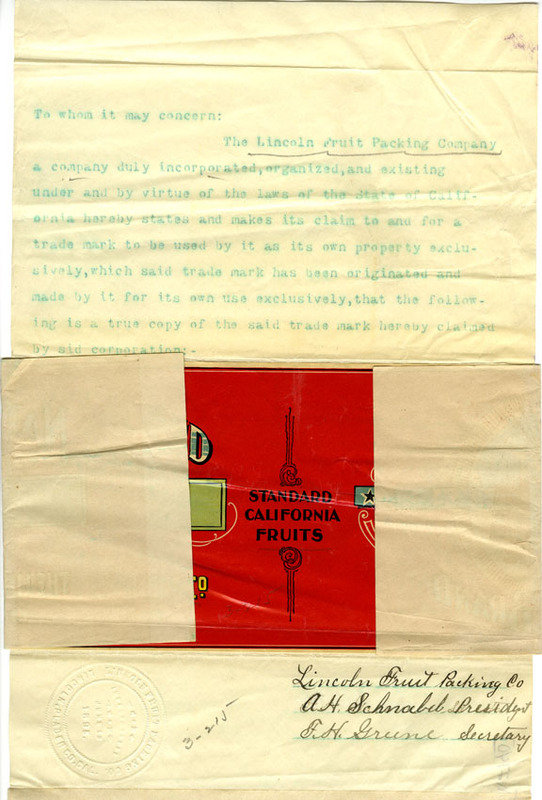 To whom it may concern:
The Lincoln Fruit Packing Company
a company duly incorporated,organized,and existing
under and by virtue of the laws of the State of Calif-
ornia hereby states and makes its claim to and for a
trade mark to be used by it as its own property exclu-
sively,which said trade mark has been originated and
made by it for its own use exclusively,that the follow-
ing is a true copy of the said trade mark hereby claimed
by sid corporation:-
D
STANDARD
CALIFORNIA
FRUITS
Co
Lincoln Fruit Packing Co
A.H. Schnabel President
F.H. Grune Secretary
3-215